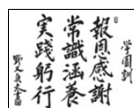 学園訓
報恩感謝
常識涵養
実践躬行